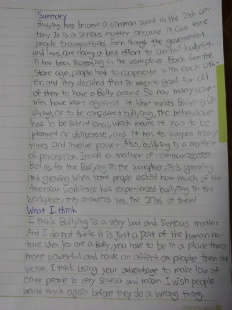 Summary
Bullying has become a common word in the 21st cen-
tury. It is a serious matter because it can leave
people traumatized. Even though the government
and laws are doing a best effort to control bullying
it has been increasing in the workplace. Back from the
Stone age, people had to cooperate with each oth-
er, and they decided that it wasn't good for all
of them to have a Bully around. So now many coun-
tries have laws against it.
or to be considered bullying, the behavior
has to be intentional, which means it has to be
planned or deliberate, and it has to happen many
times and involve power. Also, bullying is a matter
of perception. It is a matter of communication
But as for the Bullying in the workplace, it is growing
and growing. When some people asked how much of the
American workforce has experienced bullying in the
workplace, the answer was the 27% of them!
What I think
I think Bullying is a very bad and serious matter.
And I do not think it is Just a part of the human na-
ture. When you are a Bully, you have to be in a place that is
more powerful and have an effect on people than the
victim. I think using your advantage to make fun of
other people is very selfish and mean. I wish people
would think again before they do a wrong thing.